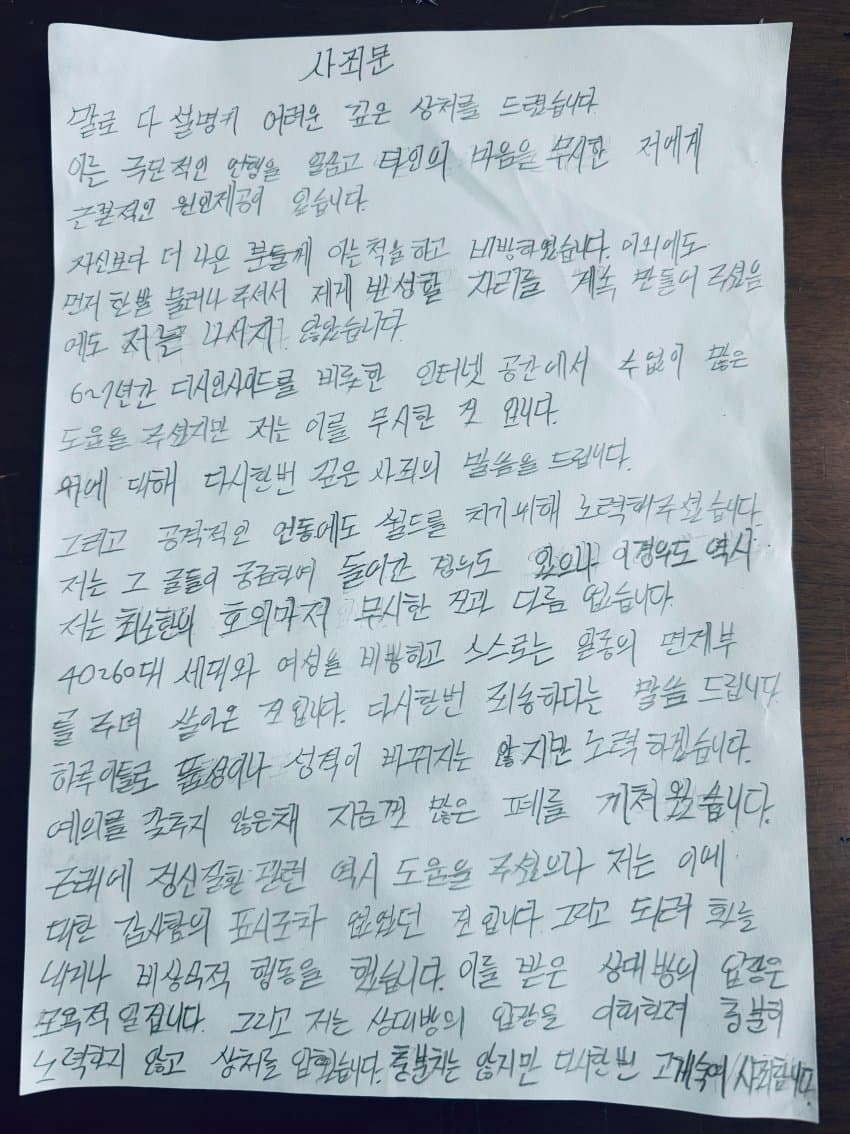 사죄문
말로 다 설명키 어려운 깊은 상처를 드렸습니다
이는 극단적인 언행을 일삼고 타인의 마음을 무시한 저에게
근본적인 원인제공이 있습니다.
자신보다 더 나은 분들께 아는척을 하고 비방하였습니다. 이외에도
먼저 한발 물러나 주셔서 제게 반성할 자리를 계속 만들어 주셨음
에도 저는 나서지 않았습니다.
6~7년간 디시인사이드를 비롯한 인터넷 공간에서 수없이 많은
도움을 주셨지만 저는 이를 무시한 것 입니다.
위에 대해 다시한번 깊은 사죄의 말씀을 드립니다.
그리고 공격적인 언동에도 쉴드를 치기위해 노력해주셨습니다.
저는 그 글들이 궁금하여 들어간 경우도 있으나 이경우도 역시
저는 최소한의 호의마저 무시한 것과 다름 없습니다.
40260대 세대와 여성을 비방하고 스스로는 일종의 면제부
를 주며 살아온 것 입니다. 다시한번 죄송하다는 말씀 드립니다
하루이틀로 품성이나 성격이 바뀌지는 않지만 노력하겠습니다.
예의를 갖추지 않은채 지금껏 많은 폐를 끼쳐왔습니다.
근래에 정신질환 관련 역시 도움을 주셨으나 저는 이에
대한 감사함의 표시조차 없었던 것 입니다. 그리고 되려 화를
내거나 비상식적 행동을 했습니다. 이를 받은 상대방의 입장은
모욕적 일겁니다. 그리고 저는 상대방의 입장을 이해하려 충분히
노력하지 않고 상처를 입혔습니다. 충분치는 않지만 다시한번 고개숙여 사죄합니다.